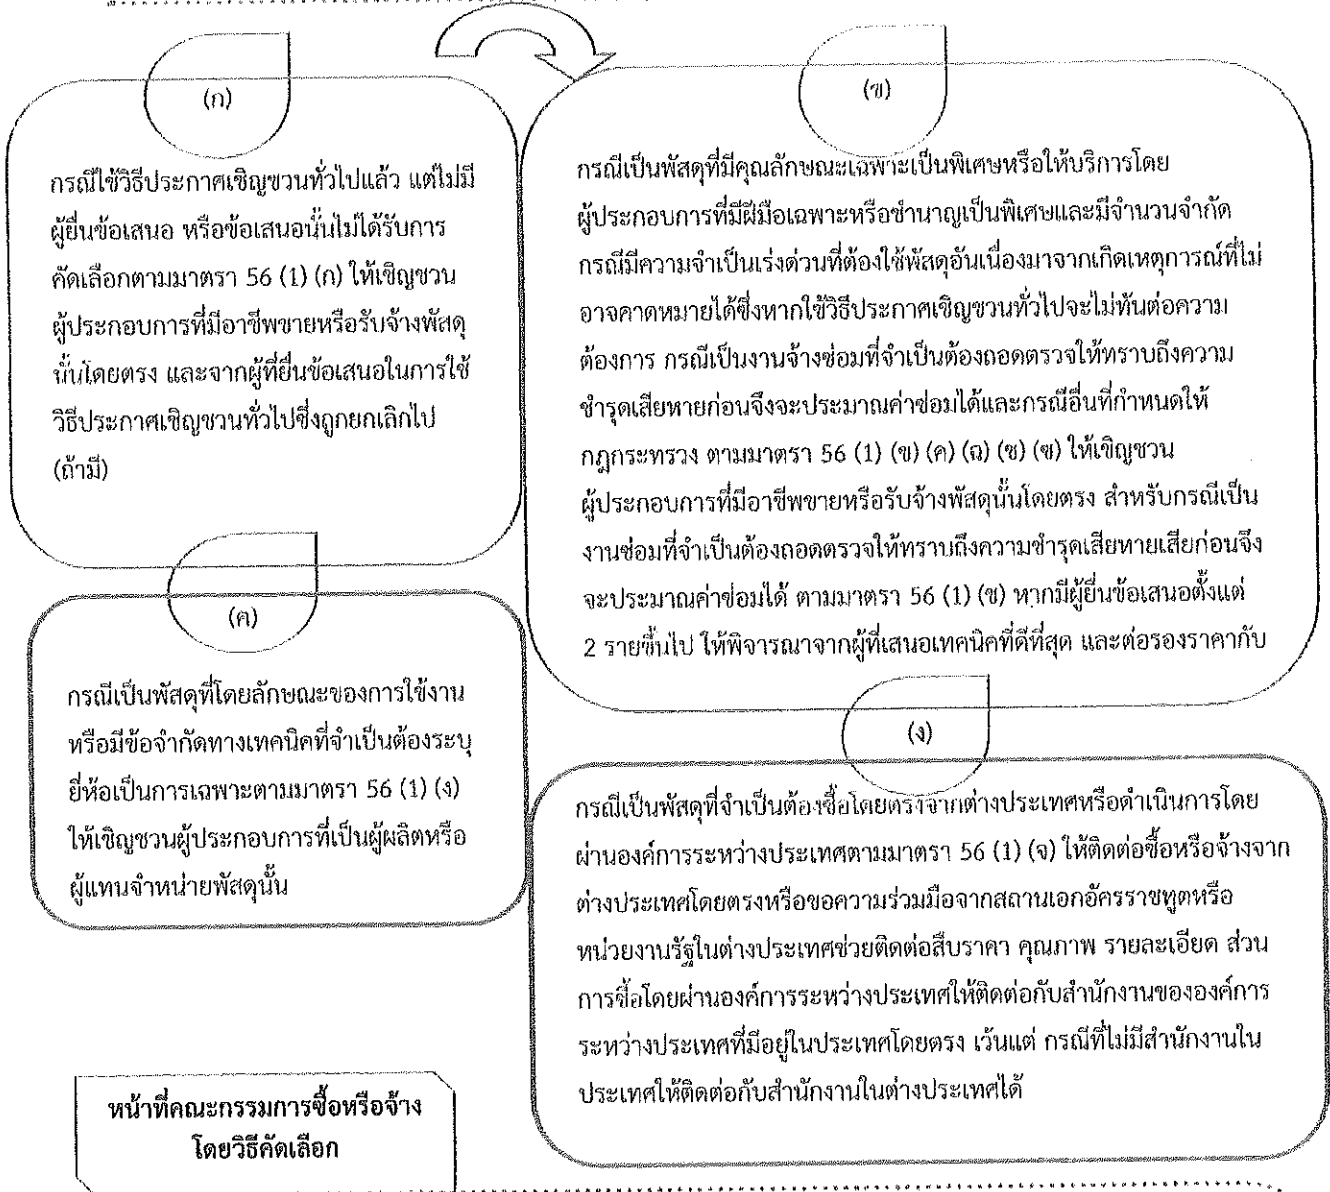 (ก)
กรณีใช้วิธีประกาศเชิญชวนทั่วไปแล้ว แต่ไม่มี
ผู้ยื่นข้อเสนอ หรือข้อเสนอนั้นไม่ได้รับการ
คัดเลือกตามมาตรา 56 (1) (ก) ให้เชิญชวน
ผู้ประกอบการที่มีอาชีพขายหรือรับจ้างพัสดุ
นั้นโดยตรง และจากผู้ที่ยื่นข้อเสนอในการใช้
วิธีประกาศเชิญชวนทั่วไปซึ่งถูกยกเลิกไป
(ถ้ามี)
(ข)
กรณีเป็นพัสดุที่มีคุณลักษณะเฉพาะเป็นพิเศษหรือให้บริการโดย
ผู้ประกอบการที่มีฝีมือเฉพาะหรือชำนาญเป็นพิเศษและมีจำนวนจำกัด
กรณีมีความจำเป็นเร่งด่วนที่ต้องใช้พัสดุอันเนื่องมาจากเกิดเหตุการณ์ที่ไม่
อาจคาดหมายได้ซึ่งหากใช้วิธีประกาศเชิญชวนทั่วไปจะไม่ทันต่อความ
ต้องการ กรณีเป็นงานจ้างซ่อมที่จำเป็นต้องถอดตรวจให้ทราบถึงความ
ชำรุดเสียหายก่อนจึงจะประมาณค่าซ่อมได้และกรณีอื่นที่กำหนดให้
กฎกระทรวง ตามมาตรา 56 (1) (ข) (ค) (ฉ) (ช) (ซ) ให้เชิญชวน
ผู้ประกอบการที่มีอาชีพขายหรือรับจ้างพัสดุนั้นโดยตรง สำหรับกรณีเป็น
งานซ่อมที่จำเป็นต้องถอดตรวจให้ทราบถึงความชำรุดเสียหายเสียก่อนจึง
จะประมาณค่าซ่อมได้ ตามมาตรา 56 (1) (ช) หากมีผู้ยื่นข้อเสนอตั้งแต่
2 รายขึ้นไป ให้พิจารณาจากผู้ที่เสนอเทคนิคที่ดีที่สุด และต่อรองราคากับ
(ค)
กรณีเป็นพัสดุที่โดยลักษณะของการใช้งาน
หรือมีข้อจำกัดทางเทคนิคที่จำเป็นต้องระบุ
ยี่ห้อเป็นการเฉพาะตามมาตรา 56 (1) (ง)
ให้เชิญชวนผู้ประกอบการที่เป็นผู้ผลิตหรือ
ผู้แทนจำหน่ายพัสดุนั้น
(ง)
กรณีเป็นพัสดุที่จำเป็นต้องซื้อโดยตรงจากต่างประเทศหรือดำเนินการโดย
ผ่านองค์การระหว่างประเทศตามมาตรา 56 (1) (จ) ให้ติดต่อซื้อหรือจ้างจาก
ต่างประเทศโดยตรงหรือขอความร่วมมือจากสถานเอกอัครราชทูตหรือ
หน่วยงานรัฐในต่างประเทศช่วยติดต่อสืบราคา คุณภาพ รายละเอียด ส่วน
การซื้อโดยผ่านองค์การระหว่างประเทศให้ติดต่อกับสำนักงานขององค์การ
ระหว่างประเทศที่มีอยู่ในประเทศโดยตรง เว้นแต่ กรณีที่ไม่มีสำนักงานใน
ประเทศให้ติดต่อกับสำนักงานในต่างประเทศได้
หน้าที่คณะกรรมการซื้อหรือจ้าง
โดยวิธีคัดเลือก